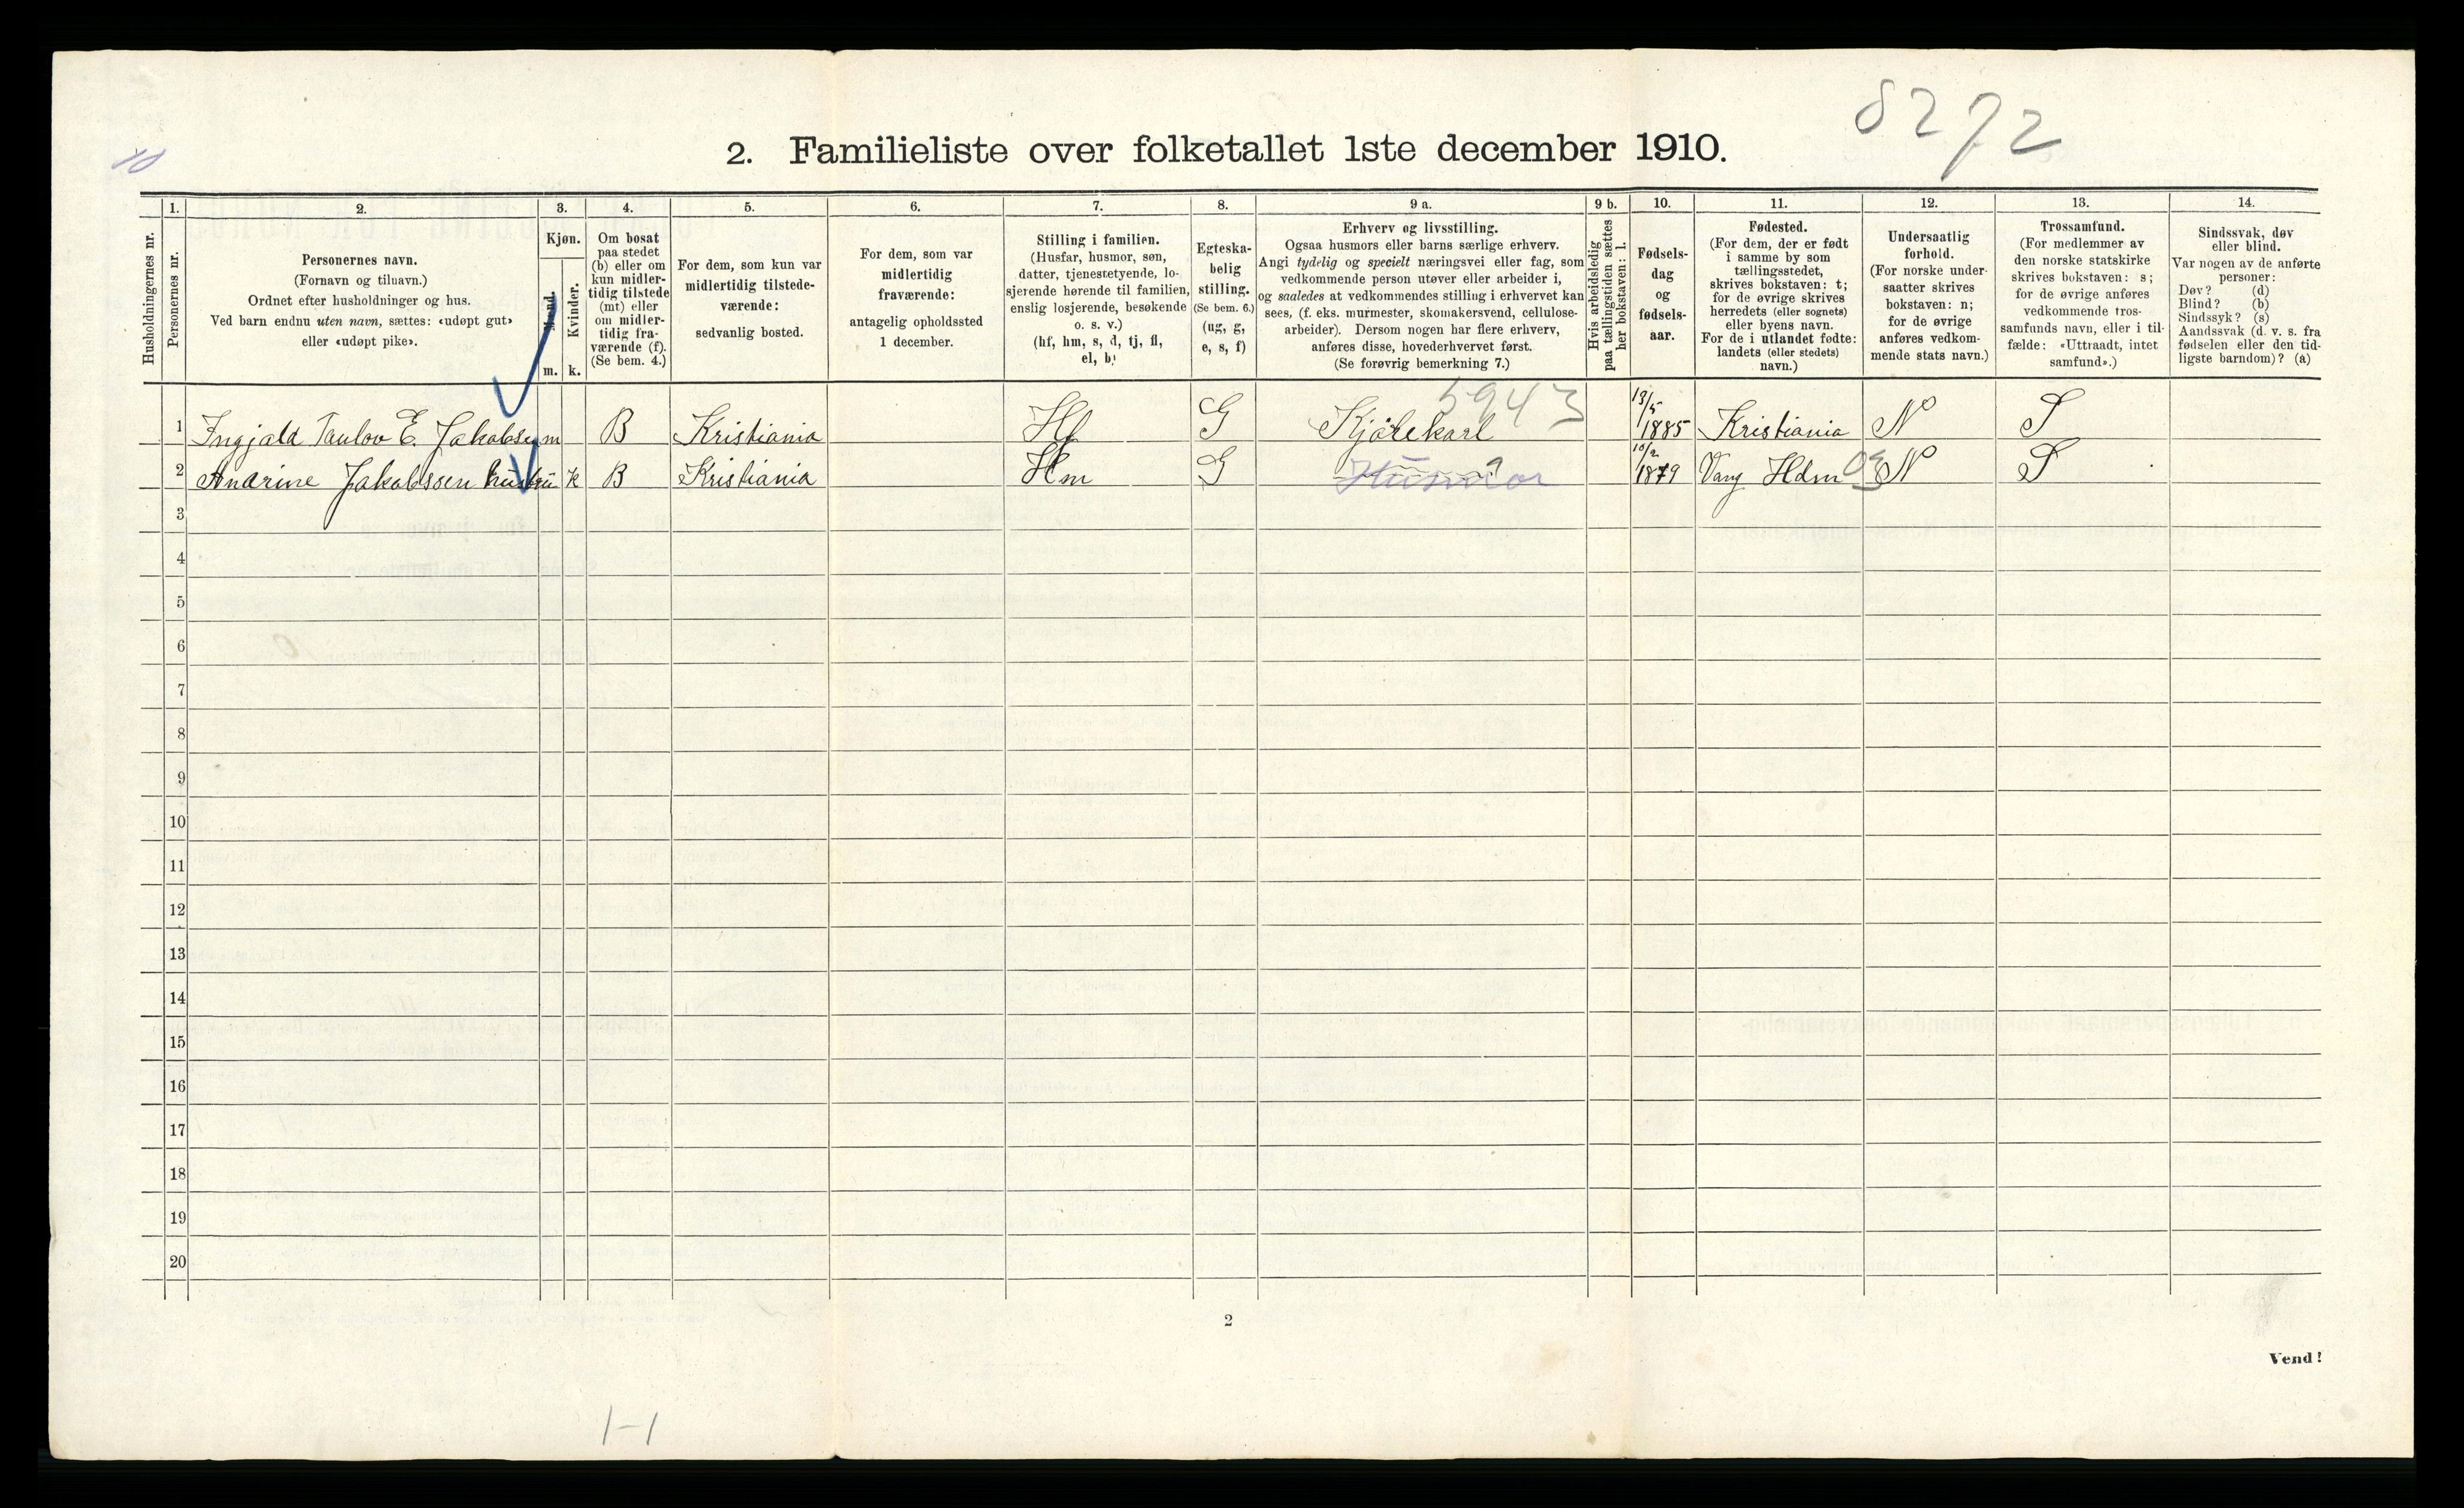 8272
2. Familieliste over folketallet 1ste december 1910.
1. 2. 3. 4. 5. 6. 7. 8. 9 a. 9 b. 10. 11. 12. 13. 14.
Husholdningernes nr.
Personernes nr.
Personernes navn.
(Fornavn og tilnavn.)
Ordnet efter husholdninger og hus.
Ved barn endnu uten navn, sættes: «udøpt gut»
eller «udøpt pike».
Kjøn.
Mænd.
Kvinder.
m. k.
Om bosat
paa stedet
(b) eller om
kun midler-
tidig tilstede
(mt) eller
om midler-
tidig fra-
værende (f).
(Se bem. 4.)
For dem, som kun var
midlertidig tilstede-
værende:
sedvanlig bosted.
For dem, som var
midlertidig
fraværende:
antagelig opholdssted
1 december.
Stilling i familien.
(Husfar, husmor, søn,
datter, tjenestetyende, lo-
sjerende hørende til familien,
enslig losjerende, besøkende
o. s. v.)
(hf, hm, s, d, tj, fl,
el, b)
Egteska-
belig
stilling.
(Se bem. 6.)
(ug, g,
e, s, f)
Erhverv og livsstilling.
Ogsaa husmors eller barns særlige erhverv.
Angi tydelig og specielt næringsvei eller fag, som
vedkommende person utøver eller arbeider i,
og saaledes at vedkommendes stilling i erhvervet kan
sees, (f. eks. murmester, skomakersvend, cellulose-
arbeider). Dersom nogen har flere erhverv,
anføres disse, hovederhvervet først.
(Se forøvrig bemerkning 7.)
Hvis arbeidsledig
paa tællingstiden sættes
her bokstaven: l.
Fødsels-
dag
og
fødsels-
aar.
Fødested.
(For dem, der er født
i samme by som
tællingsstedet,
skrives bokstaven: t;
for de øvrige skrives
herredets (eller sognets)
eller byens navn.
For de i utlandet fødte:
landets (eller stedets)
navn.)
Undersaatlig
forhold.
(For norske under-
saatter skrives
bokstaven: n;
for de øvrige
anføres vedkom-
mende stats navn.)
Trossamfund.
(For medlemmer av
den norske statskirke
skrives bokstaven: s;
for de øvrige anføres
vedkommende tros-
samfunds navn, eller i til-
fælde: «Uttraadt, intet
samfund».)
Sindssvak, døv
eller blind.
Var nogen av de anførte
personer:
Døv? (d)
Blind? (b)
Sindssyk? (s)
Aandssvak (d. v. s. fra
fødselen eller den tid-
ligste barndom)? (a)
5943
1 Ingjald Taulov E. Jakobsen m B Kristiania Hf G Kjørekarl 13/5 1885 Kristiania N S
2 Andrine Jakobssen hustru k B Kristiania Hm G Husmor 10/2 1879 Vang Hdm 03 N S
3
4
5
6
7
8
9
10
11
12
13
14
15
16
17
18
19
20
2
Vend!
1-1